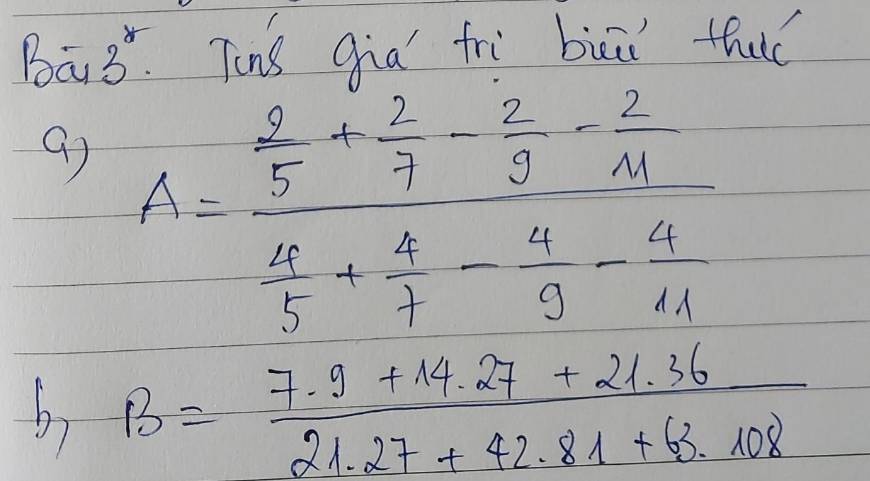 Bài 3*. Tính giá trị biểu thức
a)
A = (2/5 + 2/7 - 2/9 - 2/11) / (4/5 + 4/7 - 4/9 - 4/11)
b, B = (7.9 + 14.27 + 21.36) / (21.27 + 42.81 + 63.108)